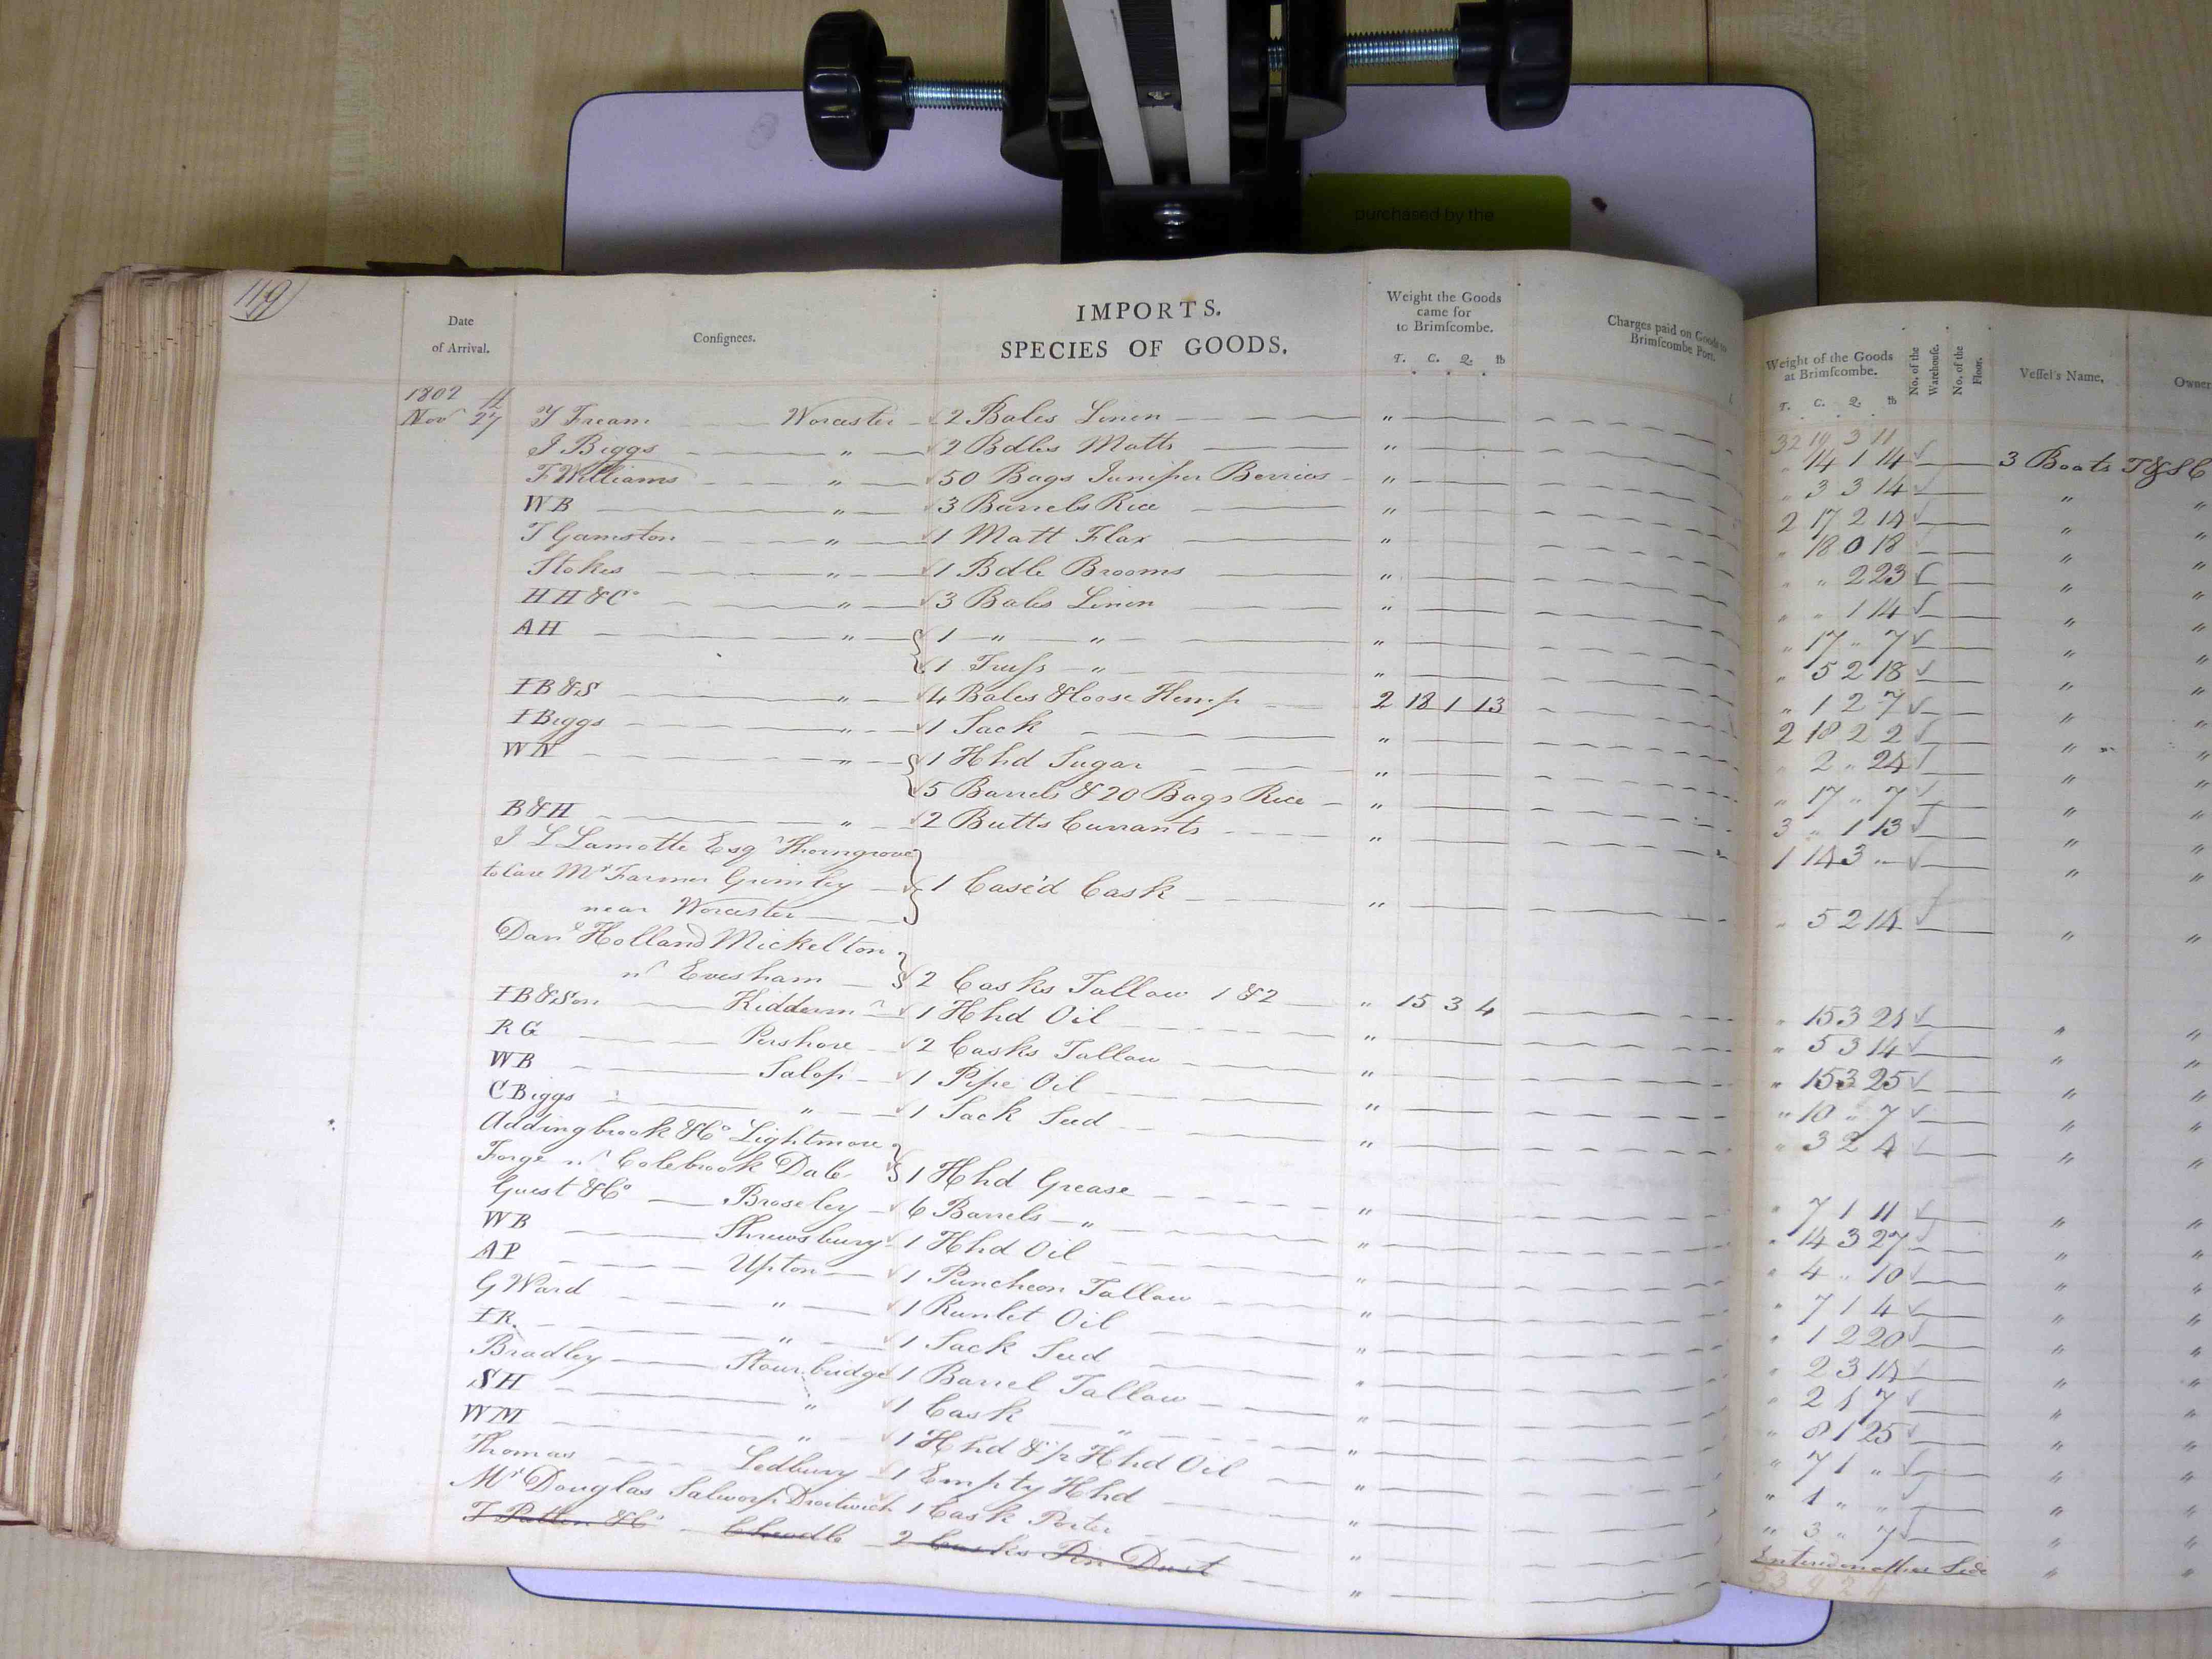 purchased by the
119
Date of Arrival.
Consignees.
IMPORTS.
SPECIES OF GOODS.
Weight the Goods came for to Brimſcombe.
T. C. Q. lb
Charges paid on Goods to Brimſcombe Port.
Weight of the Goods at Brimſcombe.
T. C. Q. lb
No. of the Warehouſe.
No. of the Floor.
Veſſel's Name.
Owner
1802
32 19 3 11
Nov 27 T Fream Worcester 2 Bales Linen " " 14 1 14 3 Boats T&SC
J Biggs " 2 Bdles Matts " " 3 3 14 " "
F Williams " 50 Bags Juniper Berries " 2 17 2 14 " "
WB " 3 Barrels Rice " " 18 0 18 " "
T Gamston " 1 Matt Flax " " " 2 23 " "
Stokes " 1 Bdle Brooms " " " 1 14 " "
HH&Co " 3 Bales Linen " " 17 " 7 " "
AH " 1 " " " " 5 2 18 " "
1 Truſs " " " 1 2 7 " "
IB&S " 4 Bales & loose Hemp 2 18 1 13 2 18 2 2 " "
I Biggs " 1 Sack " " 2 " 24 " "
WN " 1 Hhd Sugar " " 17 " 7 " "
5 Barrels & 20 Bags Rice " 3 " 1 13 " "
B&H " 2 Butts Currants " 1 14 3 " " "
J L Lamotte Esq Thorngrove
to Care Mr Farmer Grimley 1 Case'd Cask " " 5 2 14 " "
near Worcester
Danl Holland Mickelton
nr Evesham 2 Casks Tallow 1 & 2 " 15 3 4 " 15 3 21 " "
IB&Son Kiddermr 1 Hhd Oil " " 5 3 14 " "
RG Pershore 2 Casks Tallow " " 15 3 25 " "
WB Salop 1 Pipe Oil " " 10 " 7 " "
C Biggs " 1 Sack Seed " " 3 2 4 " "
Addingbrook &Co Lightmore
Forge nr Colebrook Dale 1 Hhd Grease " " 7 1 11 " "
Guest &Co Broseley 6 Barrels " " " 14 3 27 " "
WB Shrewsbury 1 Hhd Oil " " 4 " 10 " "
AP Upton 1 Puncheon Tallow " " 7 1 4 " "
G Ward " 1 Runlet Oil " " 1 2 20 " "
IR " 1 Sack Seed " " 2 3 14 " "
Bradley Stourbridge 1 Barrel Tallow " " 2 1 7 " "
SH " 1 Cask " " " 8 1 25 " "
WM " 1 Hhd & p Hhd Oil " " 7 1 " " "
Thomas Ledbury 1 Empty Hhd " " 1 " " " "
Mr Douglas Salworp Droitwich 1 Cask Porter " " 3 " 7 " "
T Patten &Co Cheadle 2 Casks Pin Dust " Entered on other Side " "